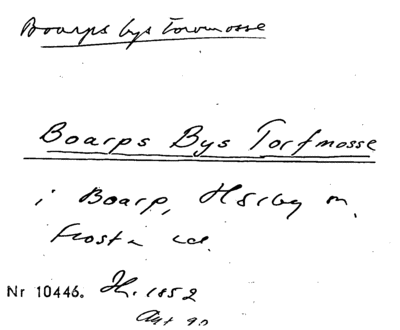 Boarps bys torvmosse
Boarps Bys Torfmosse
i Boarp, Hörby m.
Frosta
Nr 10446. 1852